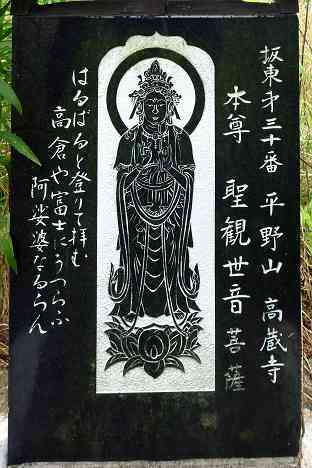 坂東才三十番 平野山 高蔵寺
本尊 聖観世音菩薩
はるばると登りて拝む
高倉や富士にうつらふ
阿娑婆なるらん